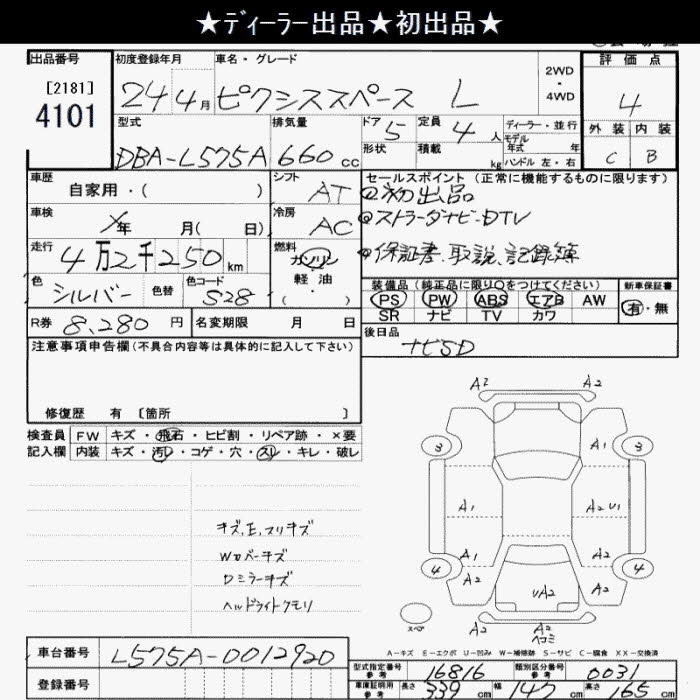 ★ディーラー出品★初出品★
出品番号 初度登録年月 車名・グレード 2WD・4WD 評価点
[2181]
4101
24年4月 ピクシススペース L 4
型式 排気量 ドア 5 定員 4人 ディーラー・並行 外装 内装
DBA-L575A 660cc 形状 積載 kg モデル年式 年 ハンドル 左・右 C B
車歴 自家用・( ) シフト AT セールスポイント(正常に機能するものに限ります)
◎初出品
車検 年 月( 日) 冷房 AC ◎ストラーダナビ・DTV
走行 4万2千250km 燃料 ガソリン 軽油 ・( ) ◎保証書、取説、記録簿
色 シルバー 色替 色コード S28 装備品(純正品に限り○をつけてください) 新車保証書
PS PW ABS エアB AW 有・無
SR ナビ TV カワ
R券 8,280円 名変期限 月 日 後日品
ナビSD
注意事項申告欄(不具合内容等は具体的に記入して下さい)
修復歴 有 [箇所 ]
検査員記入欄 FW キズ・飛石・ヒビ割・リペア跡・×要
内装 キズ・汚レ・コゲ・穴・スレ・キレ・破レ
A2 A2
3 A1 3
A1 A2 U1
A1 A2
4 A2 A2 4
UA2
A2 A2
ヘコミ
スペア
キズ、E、スリキズ
Wカバーキズ
Dミラーキズ
ヘッドライトクモリ
A-キズ E-エクボ U-凹み W-補修跡 S-サビ C-腐食 XX-交換済
車台番号 L575A-0012920
型式指定番号 参考 16816 類別区分番号 参考 0031
登録番号 車庫証明用 参考 長さ 339cm 幅 147cm 高さ 165cm